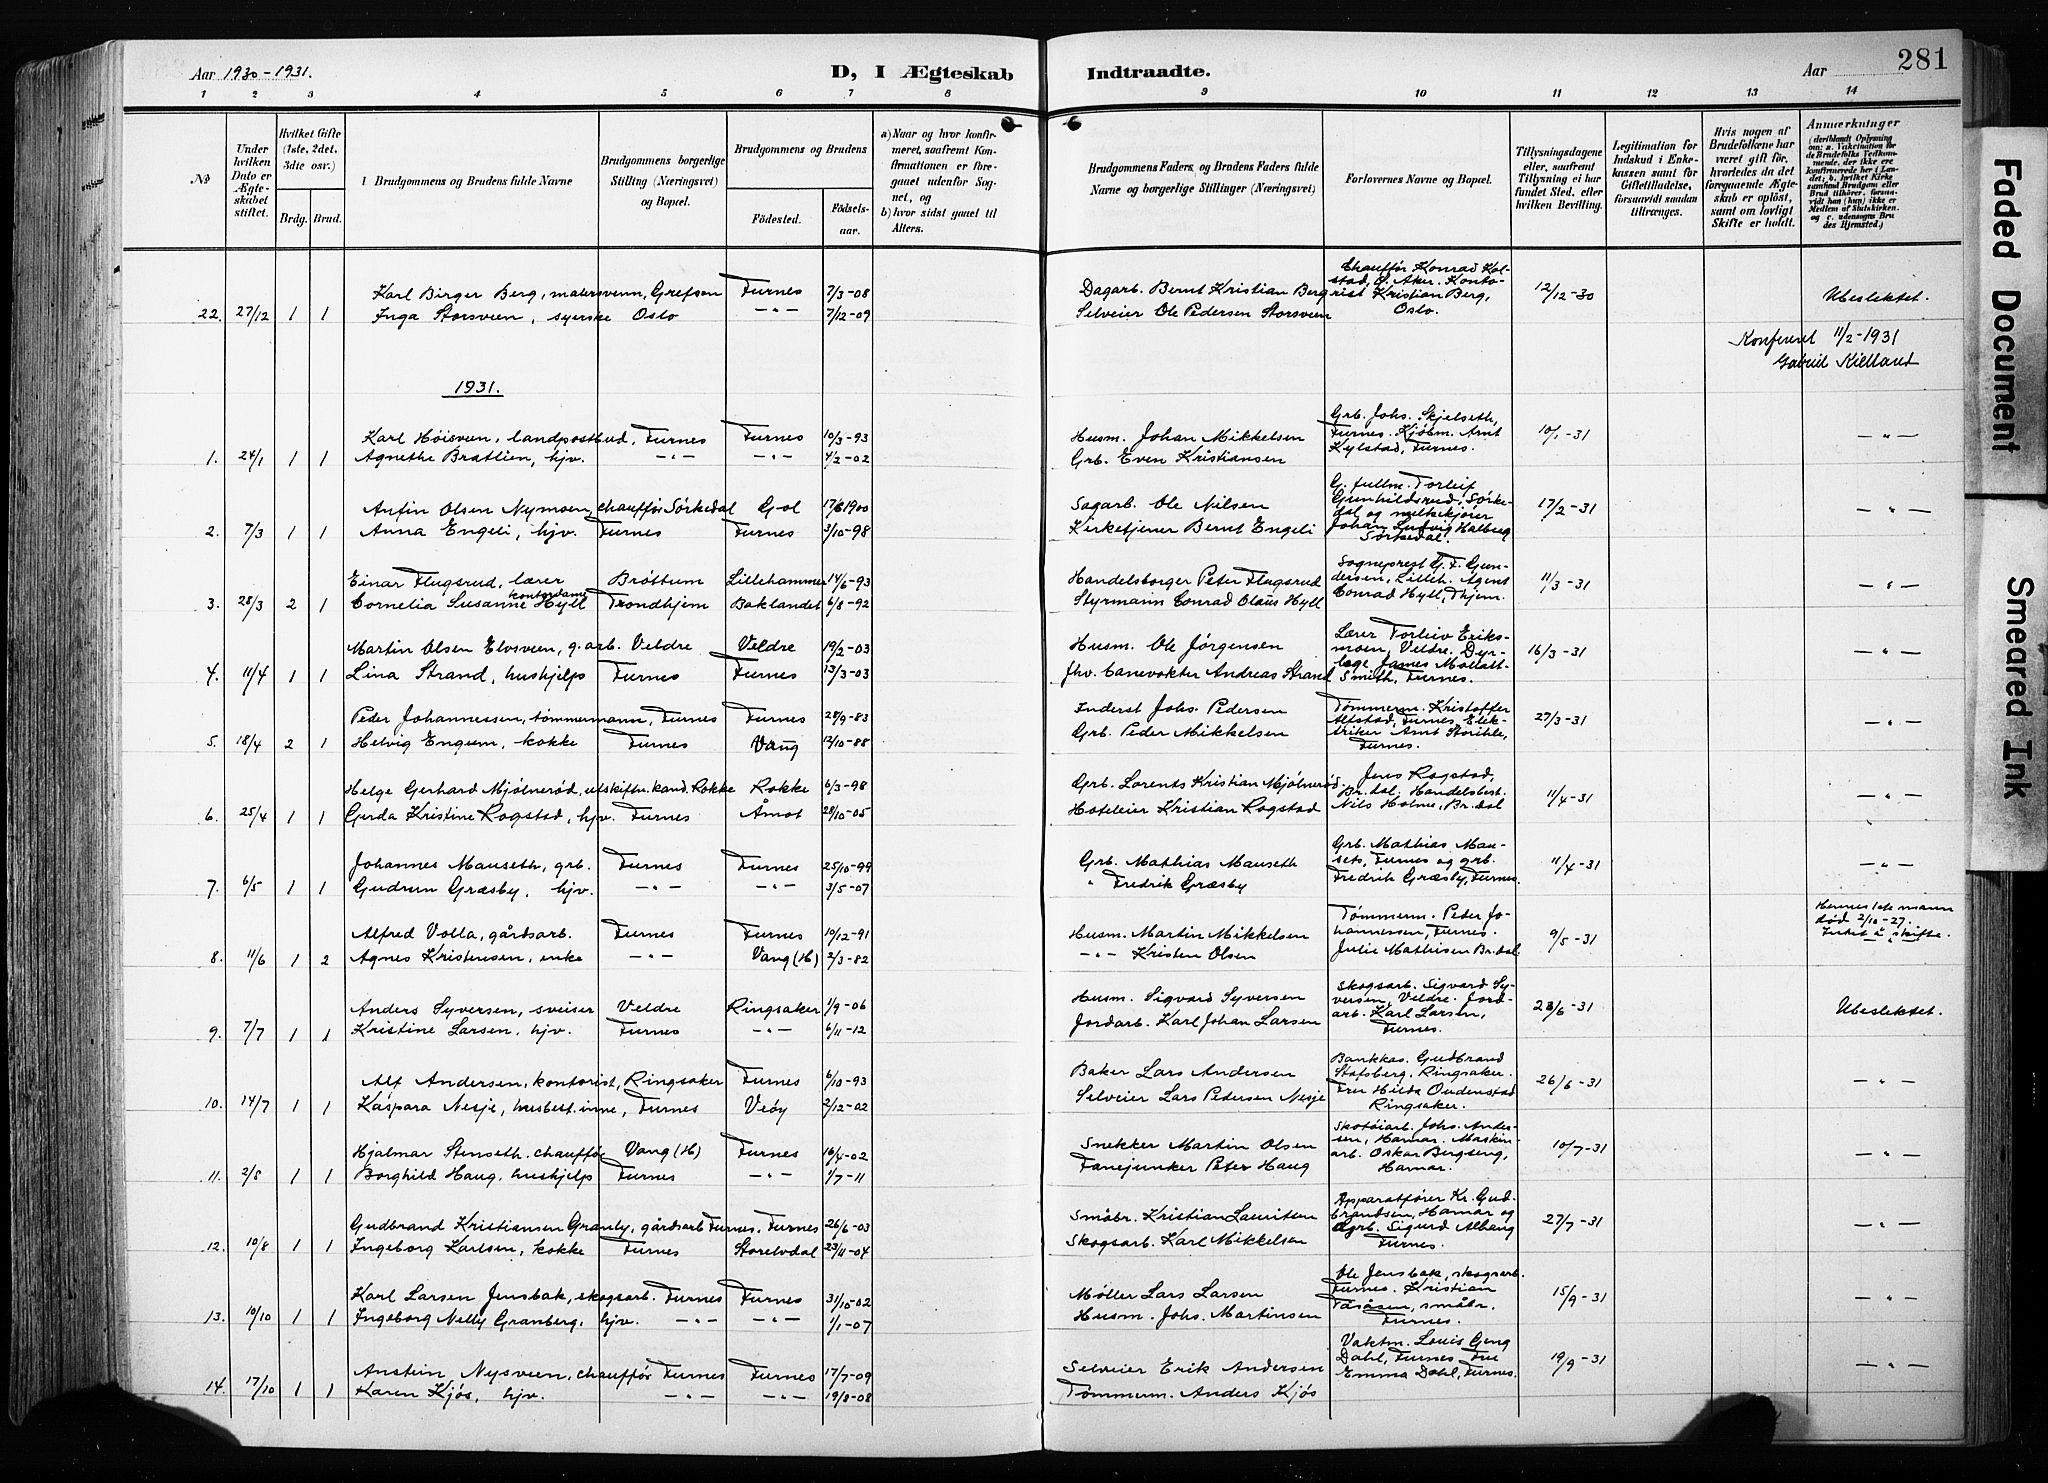 Aar 1930-1931.
D, I Ægteskab Indtraadte.
Aar
281
1 2 3 4 5 6 7 8 9 10 11 12 13 14
No
Under hvilken Dato er Ægteskabet stiftet.
Hvilket Gifte (1ste, 2det, 3die osv.)
Brdg. Brud.
Brudgommens og Brudens fulde Navne
Brudgommens borgerlige Stilling (Næringsvei) og Bopæl.
Brudgommens og Brudens
Födested. Födsels-aar.
a) Naar og hvor konfirmeret, saafremt Konfirmationen er foregaaet udenfor Sognet, og
b) hvor sidst gaaet til Alters.
Brudgommens Faders, og Brudens Faders fulde Navne og borgerlige Stillinger (Næringsvei)
Forlovernes Navne og Bopæl.
Tillysningsdagene eller, saafremt Tillysning ei har fundet Sted, efter hvilken Bevilling.
Legitimation for Indskud i Enkekassen samt for Giftetilladelse, forsaavidt saadan tiltrænges.
Hvis nogen af Brudefolkene har været gift før, hvorledes da det foregaaende Ægteskab er oplöst, samt om lovligt Skifte er holdt.
Anmærkninger (deriblandt Oplysning om: a. Vakcination for de Brudefolks Vedkommende, der ikke ere konfirmerede her i Landet; b. hvilket Kirkesamfund Brudgom eller Brud tilhörer, forsaavidt han (hun) ikke er Medlem af Statskirken, og c. udensogns Brudes Hjemsted.)
Karl Birger Berg, malersvenn, Grefsen Furnes 7/3-08 Dagarb. Bernt Kristian Berg Chauffør Konrad Kolstad, Ö. Aker. Kontorist Kristian Berg, Oslo. 12/12-30 Ubeslektet.
22. 27/12 1 1 Inga Storsveen, syerske Oslo —"— 7/12-09 Selveier Ole Pedersen Storsveen
Konferert 11/2-1931
Gabriel Kielland
1931.
Karl Høisveen, landpostbud, Furnes Furnes 10/3-93 Husm. Johan Mikkelsen Grb. Johs. Skjelseth, Furnes. Kjøbm. Arnt Kylstad, Furnes. 10/1-31 —"—
1. 24/1 1 1 Agnethe Brattlien, hjv. —"— —"— 4/2-02 Grb. Even Kristiansen
Anfin Olsen Nymoen, chauffør Sørkedal Gol 17/6 1900 Sagarb. Ole Nilsen G. fullm. Torleif Gunhildsrud, Sørkedal og melkekjører Johan Ludvig Halberg Sørkedal. 17/2-31 —"—
2. 7/3 1 1 Anna Engeli, hjv. Furnes Furnes 3/10-98 Kirketjener Bernt Engeli
Einar Flugsrud, lærer Brøttum Lillehammer 14/6-93 Handelsborger Peter Flugsrud Sogneprest G. F. Gundersen, Lilleh. Agent Conrad Hyll, Thjem. 11/3-31 —"—
3. 28/3 2 1 Cornelia Susanne Hyll kontordame Trondhjem Baklandet 6/8-92 Styrmann Conrad Olaus Hyll
Martin Olsen Elvsveen, g.arb. Veldre Veldre 19/2-03 Husm. Ole Jørgensen Lærer Torleiv Eriksmoen, Veldre. Dyrlege James Mollatt-Smith, Furnes. 16/3-31 —"—
4. 11/4 1 1 Lina Strand, hushjelp Furnes Furnes 13/3-03 Jhv. banevokter Andreas Strand
Peder Johannessen, tømmermann, Furnes Furnes 28/9-83 Inderst Johs. Pedersen Tømmerm. Kristoffer Alfstad, Furnes. Elektriker Arnt Storihle, Furnes. 27/3-31 —"—
5. 18/4 2 1 Helvig Engum, kokke Furnes Vang 12/10-88 Grb. Peder Mikkelsen
Helge Gerhard Mjølnerød, utskiftn. kand. Rokke Rokke 6/3-98 Grb. Lorents Kristian Mjølnerød Jens Rogstad, Br.dal. Handelsbest. Nils Holme, Br.dal 11/4-31 —"—
6. 25/4 1 1 Gerda Kristine Rogstad, hjv. Furnes Åmot 28/10-05 Hoteleier Kristian Rogstad
Johannes Mauseth, grb. Furnes Furnes 25/10-99 Grb. Mathias Mauseth Grb. Mathias Mausets, Furnes og grb. Fredrik Græsby, Furnes. 11/4-31 —"—
7. 6/5 1 1 Gudrun Græsby, hjv. —"— —"— 3/5-07 " Fredrik Græsby
Alfred Volla, gårdsarb. Furnes Furnes 10/12-91 Husm. Martin Mikkelsen Tømmerm. Peter Johannessen, Furnes. Julie Mathisen Br.dal 9/5-31 Hennes 1ste mann død 2/10-27. Intet å skifte. —"—
8. 11/6 1 2 Agnes Kristensen, enke —"— Vang (H) 2/3-82 —"— Kristen Olsen
Anders Syversen, sveiser Veldre Ringsaker 1/9-06 Husm. Sigvard Syversen Skogsarb. Sigvard Syversen, Veldre. Jordarb. Karl Larsen, Furnes. 23/6-31 Ubeslektet.
9. 7/7 1 1 Kristine Larsen, hjv. Furnes —"— 6/11-12 Jordarb. Karl Johan Larsen
Alf Andersen, kontorist, Ringsaker Furnes 6/10-93 Baker Lars Andersen Bankkas. Gudbrand Stafsberg, Ringsaker. Fru Hilda Oudenstad Ringsaker. 26/6-31 —"—
10. 14/7 1 1 Kaspara Nesje, husbest.inne, Furnes Veöy 2/12-02 Selveier Lars Pedersen Nesje
Hjalmar Stenseth, chauffør Vang (H) Furnes 16/4-02 Snekker Martin Olsen Skotøiarb. Johs. Andersen, Hamar. Maskinarb. Oskar Bergseng, Hamar. 10/7-31 —"—
11. 2/8 1 1 Borghild Haug, hushjelp Furnes —"— 1/7-11 Fanejunker Peter Haug
Gudbrand Kristiansen Granly, gårdsarb Furnes. Furnes 26/6-03 Småbr. Kristian Lauritsen Apparatfører Kr. Gudbrandsen, Hamar og grb. Sigurd Alhaug Furnes. 27/7-31 —"—
12. 10/8 1 1 Ingeborg Karlsen, kokke Furnes Storelvdal 23/11-04 Skogsarb. Karl Mikkelsen
Karl Larsen Jensbak, skogsarb. Furnes Furnes 31/10-02 Møller Lars Larsen Ole Jensbak, skogsarb. Furnes. Kristian Tasåsen, småbr. Furnes. 15/9-31 —"—
13. 10/10 1 1 Ingeborg Nelly Granberg, hjv. —"— —"— 1/1-07 Husm. Johs. Martinsen
Anstein Nysveen, chauffør Furnes Furnes 17/7-09 Selveier Erik Andersen Vaktm. Louis Geng Dahl, Furnes Fru Emma Dahl, Furnes. 19/9-31 —"—
14. 17/10 1 1 Karen Kjøs, hjv. —"— —"— 19/8-08 Tømmerm. Anders Kjøs
Faded Document
Smeared Ink